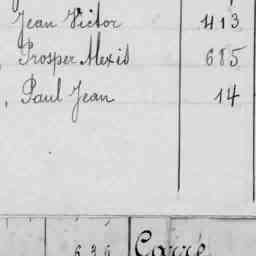 Jean Victor 413
Prosper Alexis 685
, Paul Jean 14
636 Carré